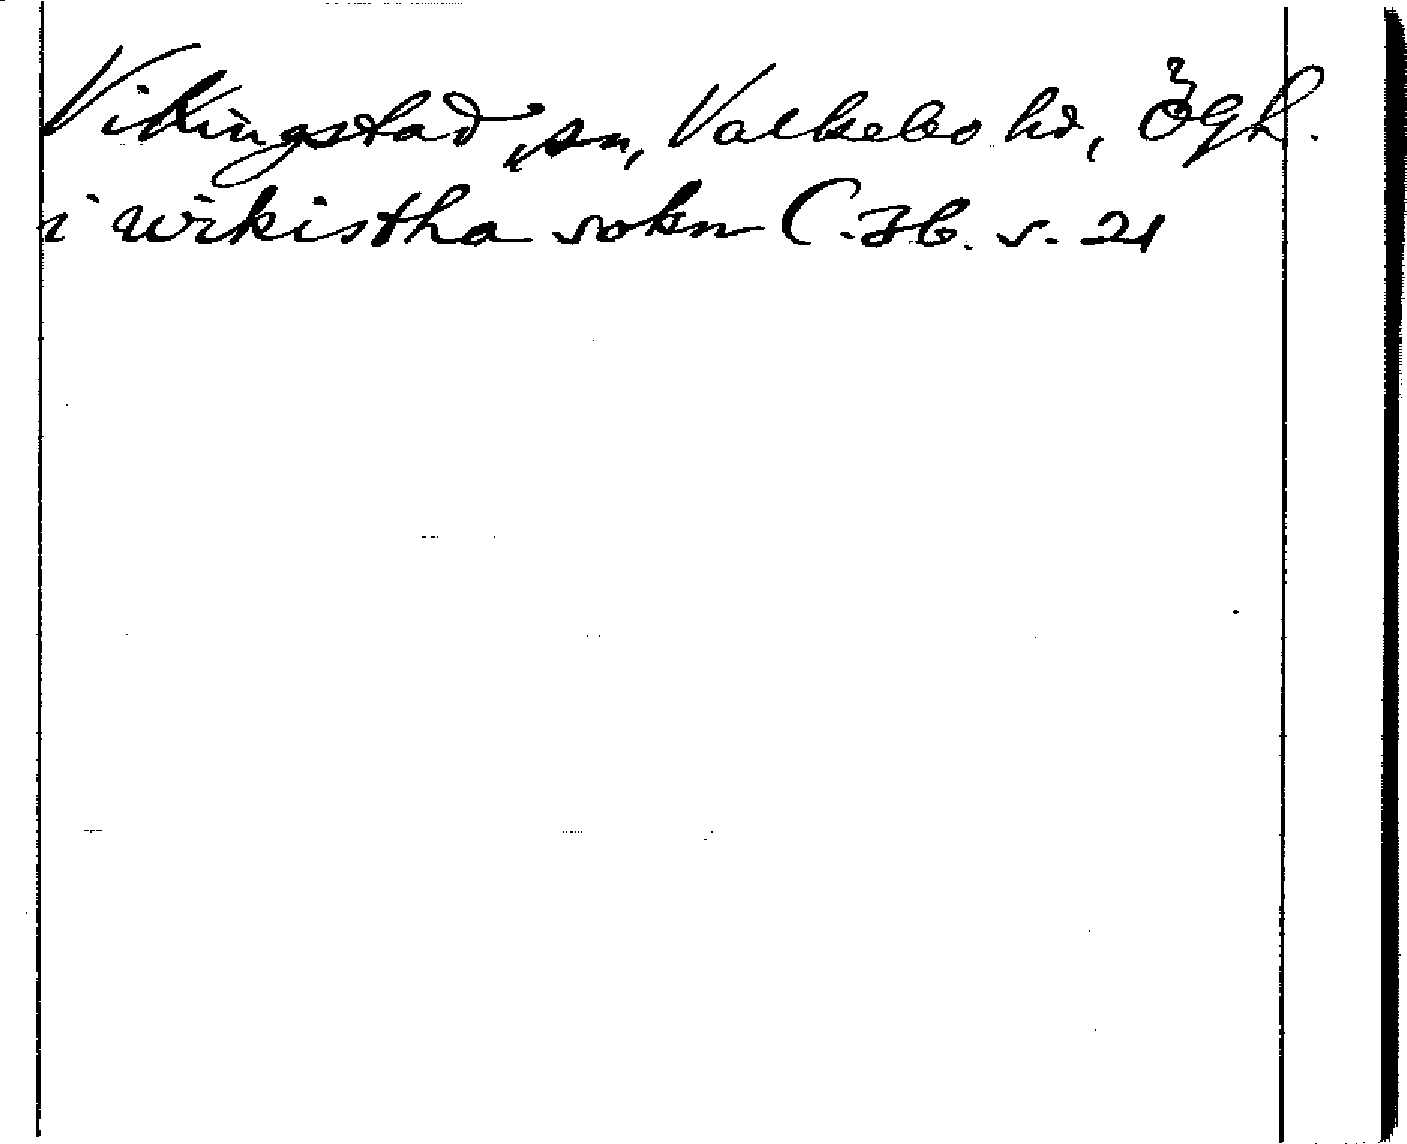 Vikingstad, sn, Valkebo hd, Ögl.
i wikistha sokn C. Hb. s. 21